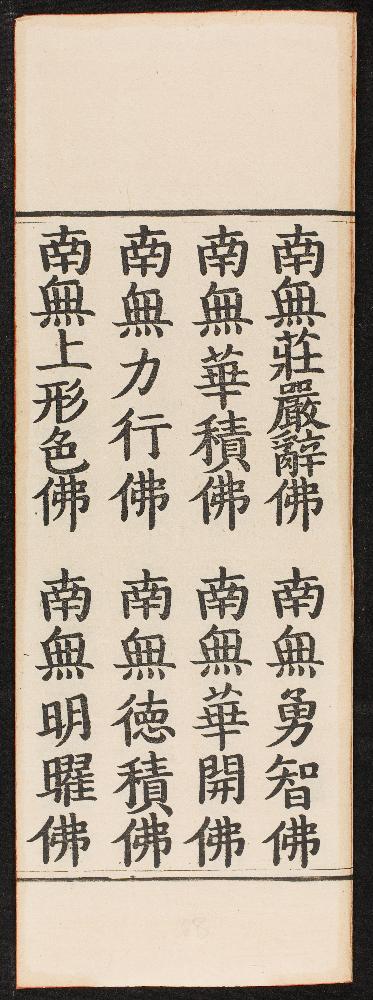 南無莊嚴辭佛　南無勇智佛
南無華積佛　南無華開佛
南無力行佛　南無德積佛
南無上形色佛　南無明曜佛